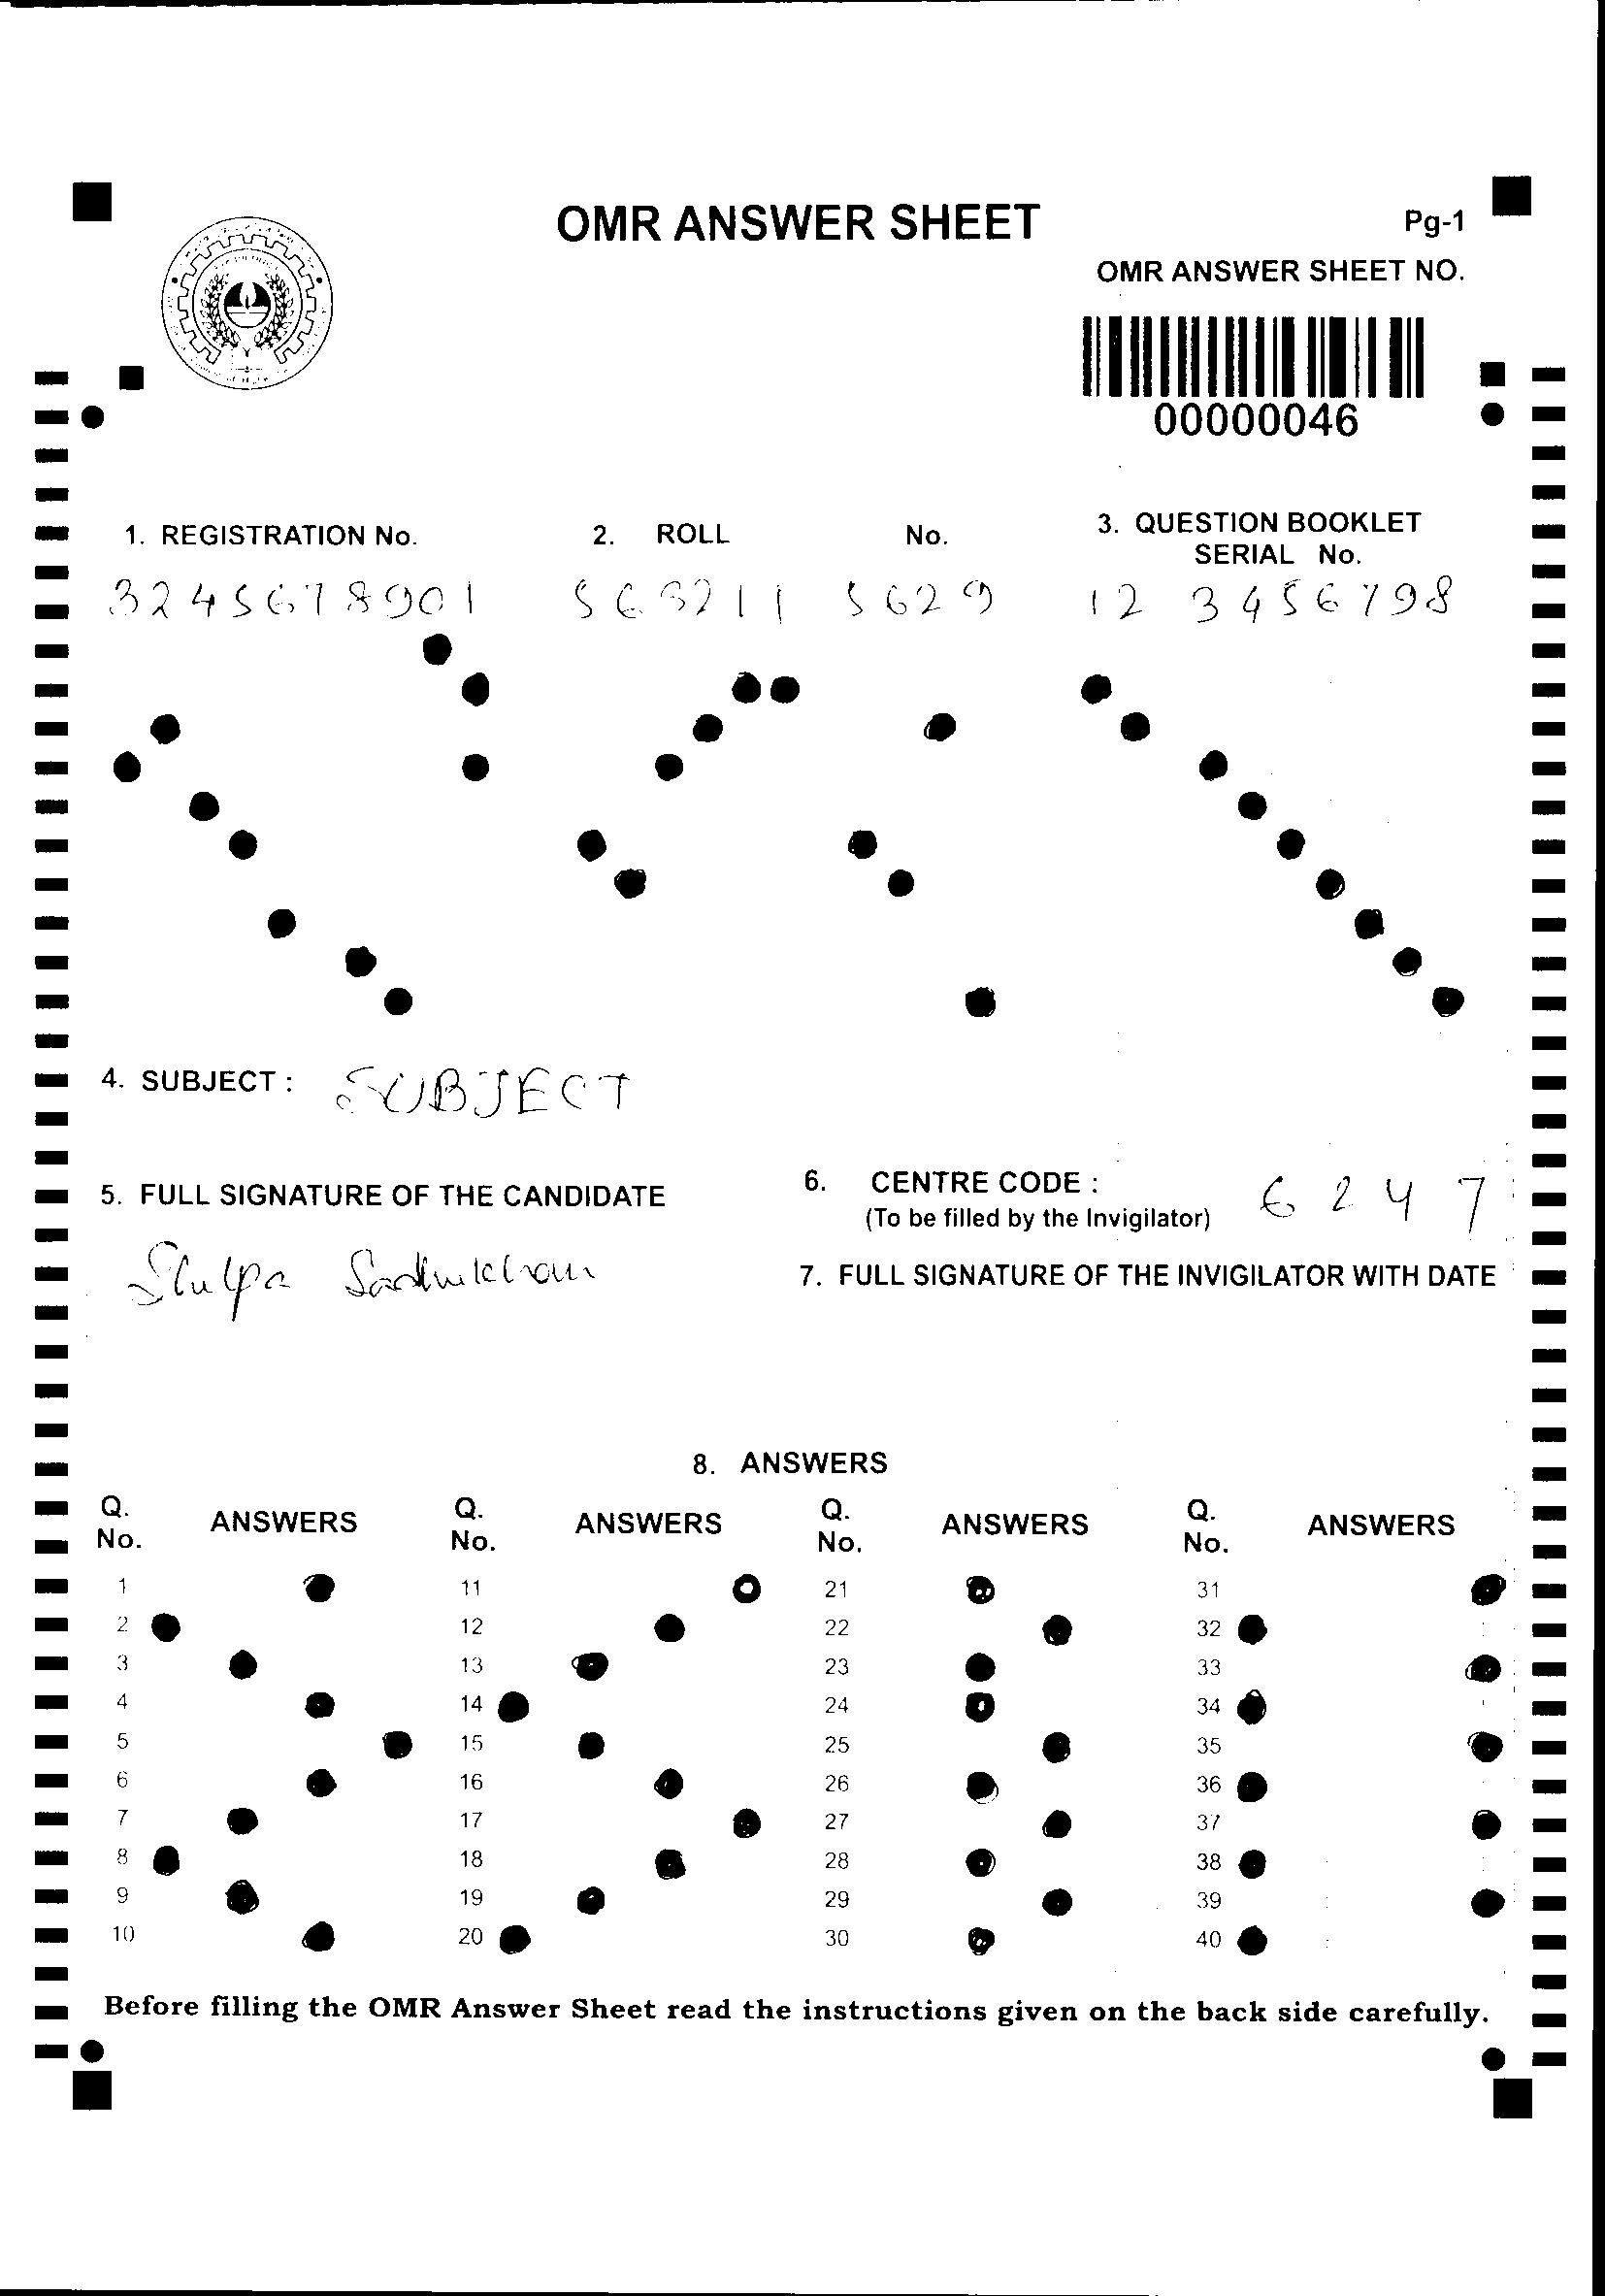 OMR ANSWER SHEET
Pg-1
OMR ANSWER SHEET NO.
00000046
1. REGISTRATION No.
3245678901
2. ROLL No.
563211 5629
3. QUESTION BOOKLET
SERIAL No.
12 3456798
4. SUBJECT : SUBJECT
5. FULL SIGNATURE OF THE CANDIDATE
6. CENTRE CODE : 6247
(To be filled by the Invigilator)
7. FULL SIGNATURE OF THE INVIGILATOR WITH DATE
8. ANSWERS
Q. No. ANSWERS Q. No. ANSWERS Q. No. ANSWERS Q. No. ANSWERS
1 11 21 31
2 12 22 32
3 13 23 33
4 14 24 34
5 15 25 35
6 16 26 36
7 17 27 37
8 18 28 38
9 19 29 39
10 20 30 40
Before filling the OMR Answer Sheet read the instructions given on the back side carefully.